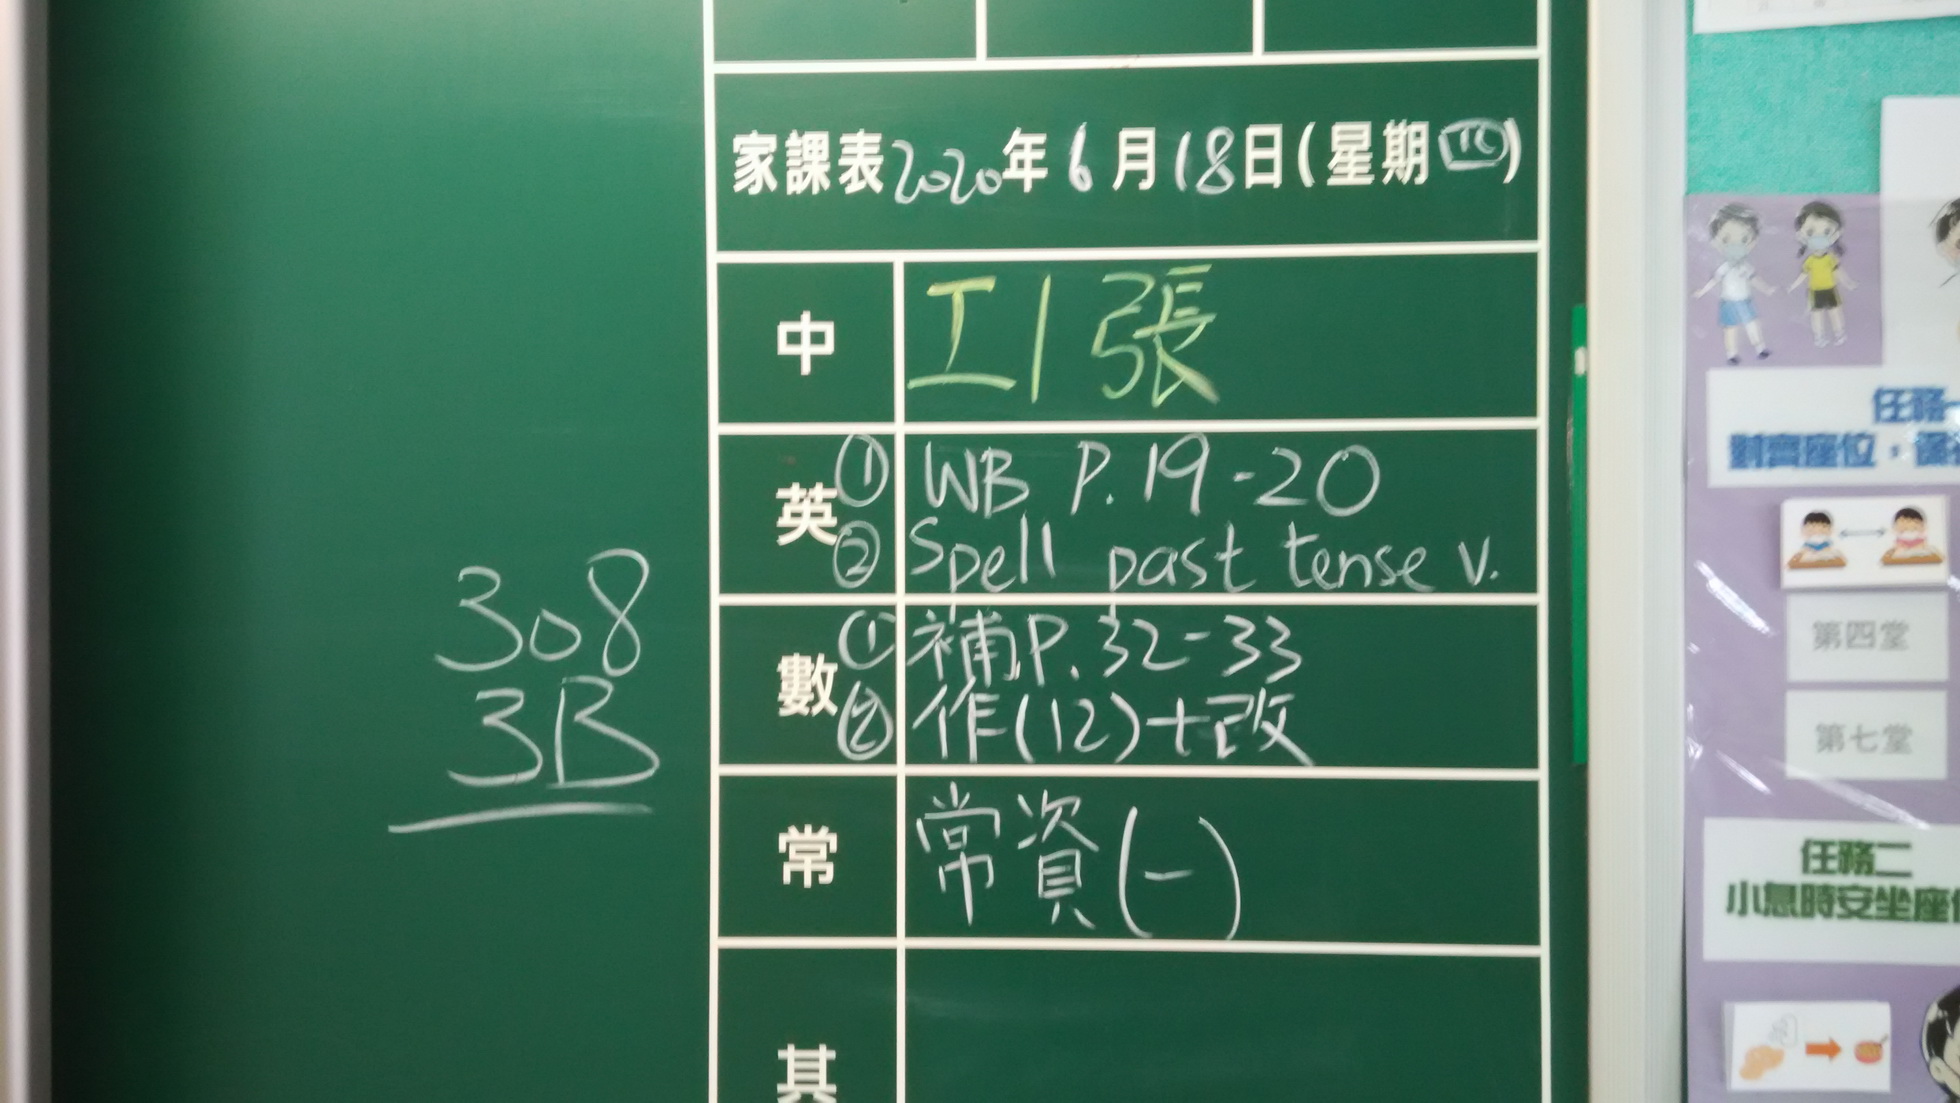 家課表2020年6月18日(星期四)
中 工1張
英 ① WB P.19-20
② Spell past tense v.
數 ① 補P.32-33
② 作(12)+改
常 常資(一)
其
308
3B
任務一
對號座位,
第四堂
第七堂
任務二
小息時安坐座位